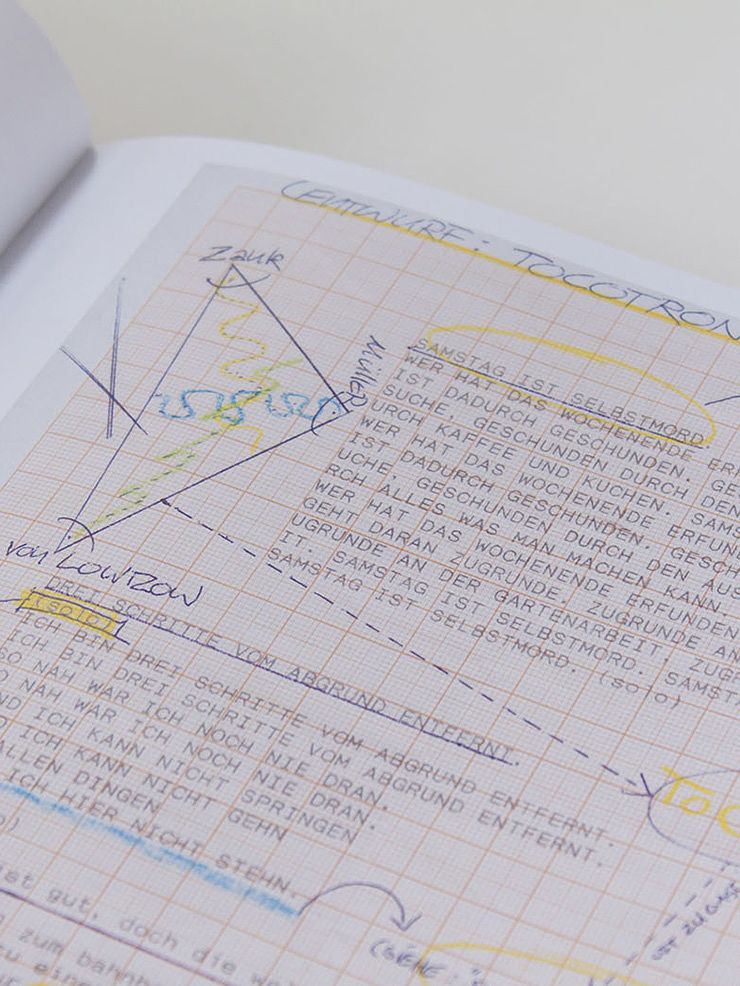 (ENTWURF: TOCOTRON
Zank
Müller
von LOWTZOW
SAMSTAG IST SELBSTMORD
WER HAT DAS WOCHENENDE ERF
IST DADURCH GESCHUNDEN. GES
SUCHE, GESCHUNDEN DURCH DEN
URCH KAFFEE UND KUCHEN. SAMS
WER HAT DAS WOCHENENDE ERFUND
IST DADURCH GESCHUNDEN. GESCH
UCHE, GESCHUNDEN DURCH DEN AUS
RCH ALLES WAS MAN MACHEN KANN.
WER HAT DAS WOCHENENDE ERFUNDEN
GEHT DARAN ZUGRUNDE. ZUGRUNDE AN
UGRUNDE AN DER GARTENARBEIT, ZUGR
IT. SAMSTAG IST SELBSTMORD. SAMST
SAMSTAG IST SELBSTMORD. (solo)
DREI SCHRITTE VOM ABGRUND ENTFERNT.
(solo)
ICH BIN DREI SCHRITTE VOM ABGRUND ENTFERNT.
ICH BIN DREI SCHRITTE VOM ABGRUND ENTFERNT.
SO NAH WAR ICH NOCH NIE DRAN.
O NAH WAR ICH NOCH NIE DRAN.
ND ICH KANN NICHT SPRINGEN
D ICH KANN NICHT GEHN
ALLEN DINGEN
ICH HIER NICHT STEHN.
TOC
ist gut, doch die we
zum bahnh
zu eine
(SIEHE: "
IST ZU GAST